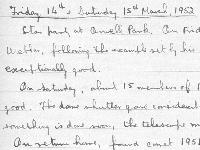 Friday, 14th & Saturday 15th March, 1952
Star party at Park. On Frid
following the example set by his
exceptionally good.
On Saturday, about 15 members of
good. The dome shutter gave considerab
something is done soon, the telescope m
On return home, found comet 1951